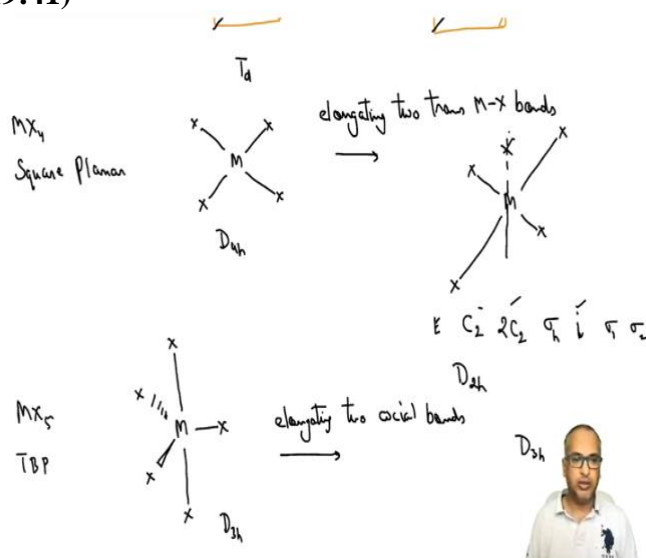 9:41)
Td
MX4
Square Planar
X X
M
X X
D4h
elongating two trans M-X bonds
X
X X
M
X
X
E C2 2C2 σh i σ1 σ2
D2h
MX5
TBP
X
X
M X
X
X
D3h
elongating two axial bonds
D3h